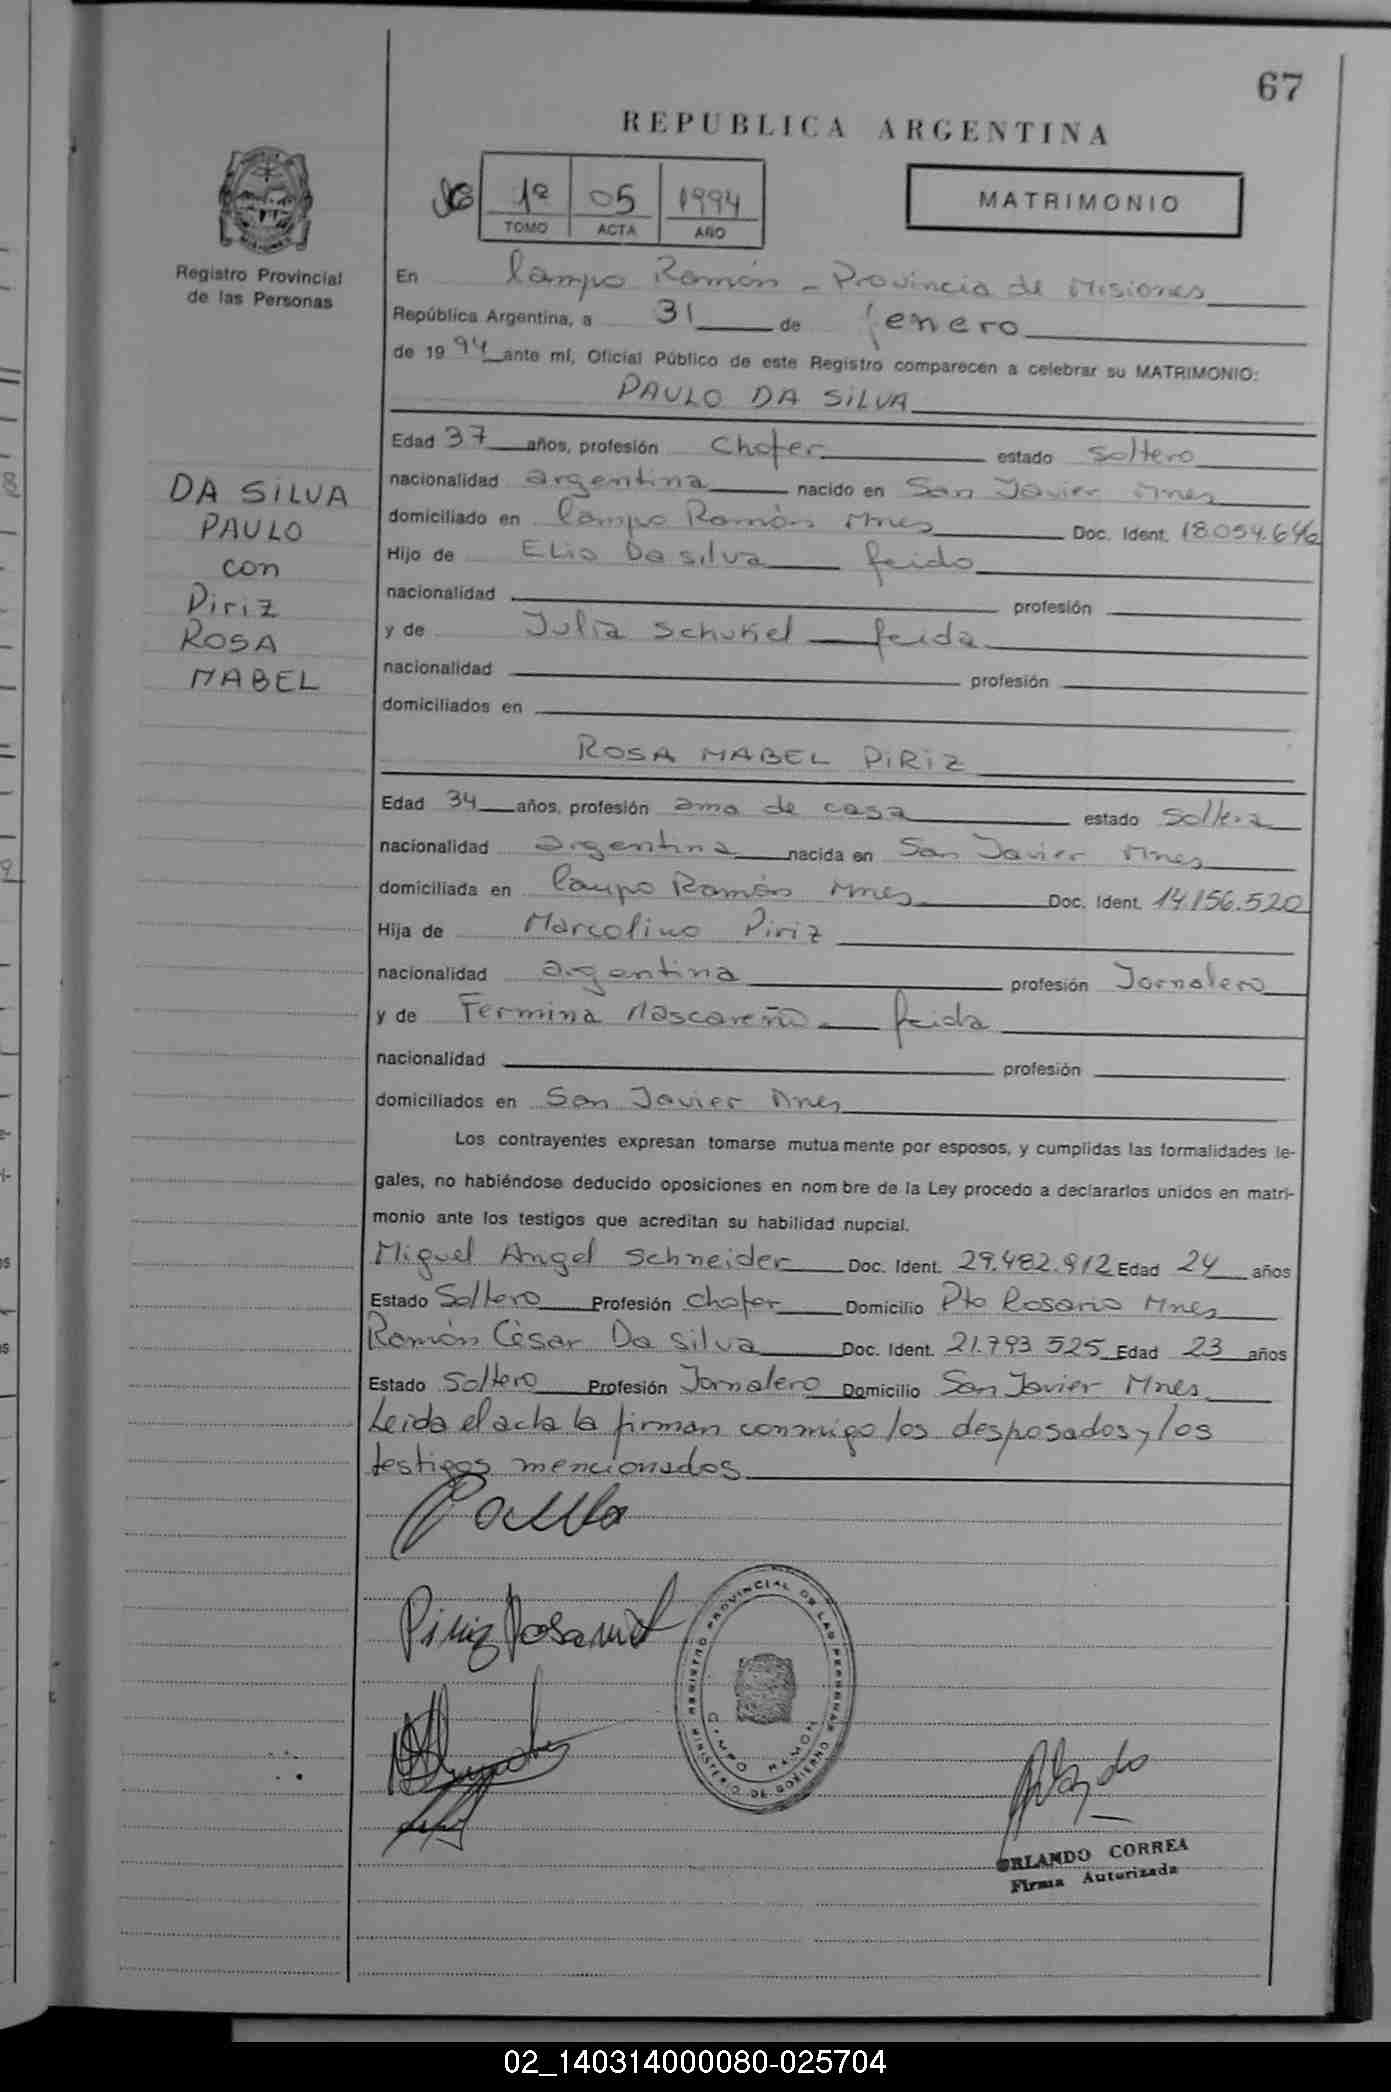 67
REPUBLICA ARGENTINA
1º 05 1994
TOMO ACTA AÑO
MATRIMONIO
Registro Provincial
de las Personas
En Campo Ramón - Provincia de Misiones
República Argentina, a 31 de enero
de 1994 ante mí, Oficial Público de este Registro comparecen a celebrar su MATRIMONIO:
PAULO DA SILVA
Edad 37 años, profesión Chofer estado Soltero
nacionalidad argentina nacido en San Javier Mnes
domiciliado en Campo Ramón Mnes Doc. Ident. 18.054.646
Hijo de Elio Da silva fcido
nacionalidad profesión
y de Julia Schukel fcida
nacionalidad profesión
domiciliados en
DA SILVA
PAULO
con
Piriz
ROSA
MABEL
ROSA MABEL PiRiZ
Edad 34 años, profesión ama de casa estado Soltera
nacionalidad argentina nacida en San Javier Mnes
domiciliada en Campo Ramón Mnes Doc. Ident. 14.156.520
Hija de Marcolino Piriz
nacionalidad argentina profesión Jornalero
y de Fermina Mascareño fcida
nacionalidad profesión
domiciliados en San Javier Mnes
Los contrayentes expresan tomarse mutuamente por esposos, y cumplidas las formalidades le-
gales, no habiéndose deducido oposiciones en nombre de la Ley procedo a declararlos unidos en matri-
monio ante los testigos que acreditan su habilidad nupcial.
Miguel Angel Schneider Doc. Ident. 29.482.912 Edad 24 años
Estado Soltero Profesión Chofer Domicilio Pto Rosario Mnes
Ramón César Da silva Doc. Ident. 21.793.525 Edad 23 años
Estado Soltero Profesión Jornalero Domicilio San Javier Mnes
Leida el acta la firman conmigo los desposados y los
testigos mencionados
Paulo
Piriz Rosa
REGISTRO PROVINCIAL DE LAS PERSONAS
MINISTERIO DE GOBIERNO
CAMPO RAMON
ORLANDO CORREA
Firma Autorizada
02_140314000080-025704